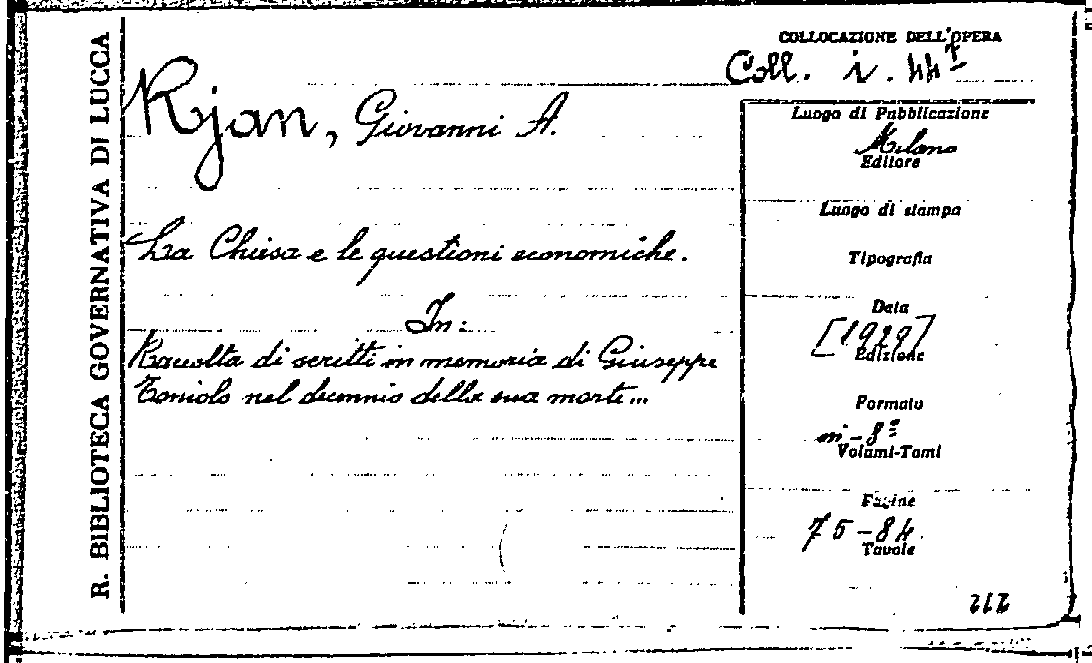 R. BIBLIOTECA GOVERNATIVA DI LUCCA
COLLOCAZIONE DELL'OPERA
Coll. i. 44
Rjan, Giovanni A.
La Chiesa e le questioni economiche.
In:
Raccolta di scritti in memoria di Giuseppe
Toniolo nel decennio della sua morte...
Luogo di Pubblicazione
Milano
Editore
Luogo di stampa
Tipografia
Data
[1929]
Edizione
Formato
in-8º
Volumi-Tomi
Pagine
75-84
Tavole